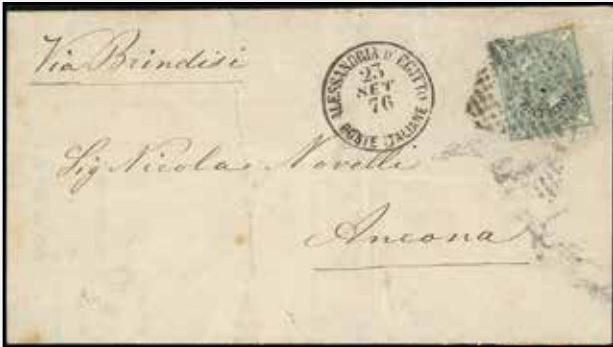 Via Brindisi
ALESSANDRIA D'EGITTO
23
SET
76
POSTE ITALIANE
Sig Nicola Novelli
Ancona